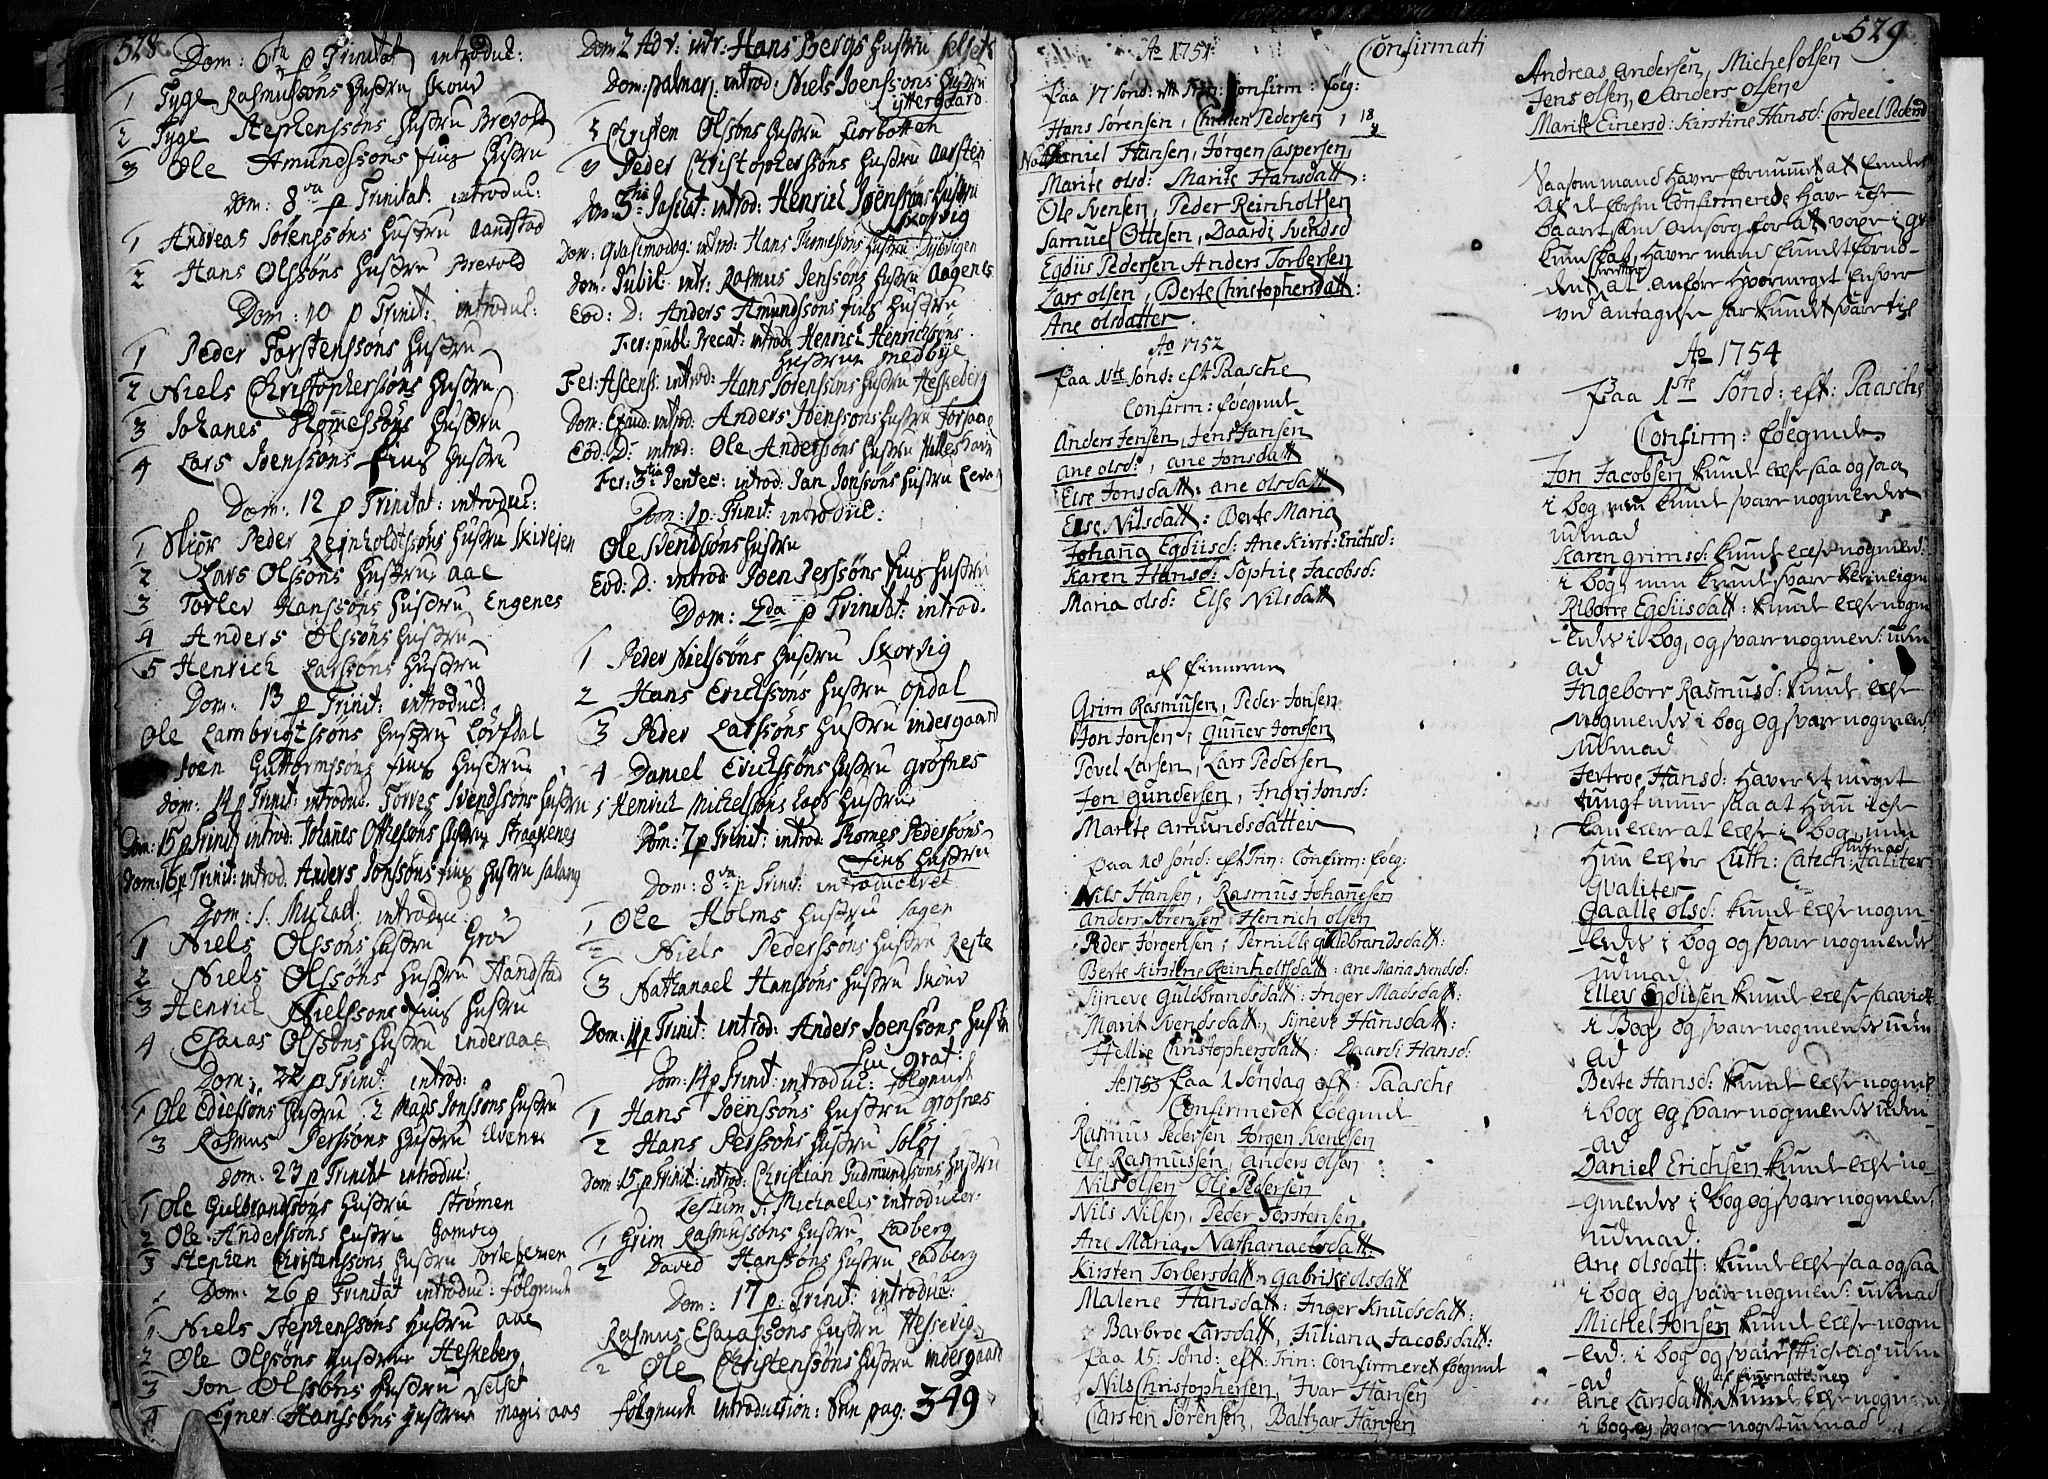 528
Dom: 6ta p Trinitat introduc:
1 Tyge Rasmussøns hustru Skovd
2 Tyge Stephenssøns hustru Brevold
3 Ole Amundssøns fins hustru
Dom: 8va p Trinitat: introduc:
1 Andreas Sørenssøns hustru Aandstad
2 Hans Olssøns hustru Brevold
Dom: 10 p Trinit: introduc:
1 Peder Torstenssøns hustru
2 Niels Christophersøns hustru
3 Johanes Thomessøns hustru
4 Lars Joenssøns fins hustru
Dom: 12 p Trinitat: introduc:
1 Skippr Peder Reinholdtssøns hustru
2 Lars Olssøns hustru aae
3 Torlev Hanssøns hustru Engenes
4 Anders Olssøns hustru
5 Henrich Larssøns hustru
Dom: 13 p Trinit: introduc:
Ole Lambrigtssøns hustru Løvsdal
Joen Guttormssøns fins hustru
Dom: 14 p Trinit: introduc: Torres Svendssøns hustru
Dom: 15 p Trinit: introd: Johanes Ottessøns hustru Straaxenes
Dom: 16 p Trinit: introd: Anders Jonssøns fins hustru Salang
Dom: S. Michael: introduc:
1 Niels Olssøns hustru Grov
2 Niels Olssøns hustru Aandstad
3 Henrich Nielssøns fins hustru
4 Esaias Olssøns hustru inderaae
Dom: 22 p Trinit: introd:
1 Ole hustru 2 Mads Jonssøns hustru
3 Rasmus Perssøns hustru Elvenes
Dom: 23 p Trinitat introduc:
1 Ole Gulbrandssøns hustru Strømen
2 Ole Anderssøns hustru
3 Stephen Christenssøns hustru
Dom: 26 p Trinitat introduc: følgende
1 Niels Stephenssøns hustru aae
2 Ole Olssøns hustru Heskeberg
3 Jon Olssøns hustru Selset
4 Hanssøns hustru
Dom 2 Adv: intr: Hans Bergs hustru Selset
Dom: palmar: introd: Niels Joenssøns hustru
yttergaard
Christen Olssøns hustru fiorbotten
Peder Christopherssøns hustru Aarsten
Dom: introd: Henrich Joenssøns hustru
Skorvig
Dom: Qvasimodog: introd: Hans Thomessøns hustru
Dom: Jubil: intr: Rasmus Jenssøns hustru Aagenes
Eod: D: Anders Amundssøns fins hustru
Fer: publ: Precat: introd: Henrich Henrichssøns
hustru medbye
Fer: Ascens: introd: Hans Sørenssøns hustru Heskeberg
Dom: Exaud: introd: Anders Joenssøns hustru
Eod: D: introd: Ole Anderssøns hustru
Fer: 3tia Pentec: introd: Jan Jonssøns hustru
Dom: 1 p: Trinit: introduc:
Ole Svendssøns hustru
Eod: D: introd: Joen Perssøns fins hustru
Dom: 2da p Trinitat: introd.
1 Peder Nielssøns hustru Skorvig
2 Hans Erichssøns hustru Opdal
3 Peder Larssøns hustru indergaard
4 Daniel Erichssøns hustru grøsnes
5 Henrich Michelssøns hustru
Dom: 7 p Trinit: introd: Thomes Pederssøns
fins hustru
Dom: 8va p Trinit: introduceret
1 Ole Holms hustru Sagen
2 Niels Pederssøns hustru Refte
3 Nathanael Hanssøns hustru Skovd
Dom: 11 p Trinit: introd: Anders Joenssøns hustru
Dom: 14 p Trinit: introduc: følgende
1 Hans Joenssøns hustru grøsnes
2 Hans Perssøns hustru
Dom: 15 p Trinit: introd: Christian Gudmundssøns hustru
Festum S. Michaelis introducer:
1 Grim Rasmussøns hustru Ladberg
2 David Hanssøns hustru Ladberg
Dom: 17 p: Trinit: introduc:
Rasmus Esaiassøns hustru Hessevig
2 Ole Christenssøns hustru indergaard
følgende introduction: Seen pag: 349
529
Ao 1751 Confirmati
Paa 17 Sønd: eft Trin: Confirm: følg:
Hans Sørensen, Christen Pedersen
Daniel Hansen, Jørgen Caspersen,
Marite olsd: Marite Hansdatt:
Ole Svensen, Peder Reinholtsen
Samuel Ottesen, Daardi Svendsd
Egdiis Pedersen Anders Torbersen
Lars olsen, Berte Christophersdatt:
Ane olsdatter
Ao 1752
Paa 1ste Sønd: eft Paasche
Confirm: følgende
Anders Jensen, Jens Jansen
Ane olsd:, Ane Jonsdatt
Else Jonsdatt: Ane olsdatt
Else Nilsdatt: Berte Maria
Johanna Egdiisd: Ane Kirst: Erichsd:
Karen Hansd: Sophie Jacobsd:
Maria olsd: Else Nilsdatt
af finnerne
Grim Rasmusen, Peder Jonsen
Jon Jonsen, Gunner Jonsen
Povel Larsen, Lars Pedersen
Jon Gundersen, Ingri Jonsd:
Marite Amundsdatter
Paa 18 Sønd: eft Trin: Confirm: følg:
Nils Hansen, Rasmus Johannesen
Anders Sørensen, Henrich olsen
Peder Jørgensen, Pernille guldbrandsdatt:
Berte Kirstine Reinholtsdatt: Ane Maria Svendsd:
Sijneve Guldbrandsdatt: Inger Madsdatt:
Marit Svendsdatt:, Sijneve Hansdatt:
Hellie Christophersdatt: Daardi Hansd:
Ao 1753 Paa 1 Søndag eft: Paasche
Confirmeret følgende
Rasmus Pedersen Jørgen Svendsen
Ole Rasmussen, Anders olsøn
Nils Olsen Ole Pedersen
Nils Nilsen, Peder Torstensen
Ane Maria Nathanaelsdatt
Kirsten Torbersdatt: Gabriele olsdatt
Malene Hansdatt: Inger Knudsdatt:
Barbroe Larsdatt, Juliana Jacobsdatt:
Paa 15 Sønd: eft: Trin: Confirmeret følgende
Nils Christophersen, Ivar Hansen
Carsten Sørensen, Baltzar Hansen
Andreas Andersen, Michel olsen
Jens olsen, Anders olsen
Marite Einersd: Kirstine Hansd: Cordeel Pedersd
Saasom mand haver fornummet at
at de førhen Confirmerede have icke
baaret den omsorg for at være i
kundskab, haver mand fundt fornø-
den at anføre hvormeget enhver
ved antagelse har kundet svare til
Ao 1754
Paa 1ste Sønd: eft: Paasche
Confirm: følgende.
Jon Jacobsen kunde læse saa og saa
i bog men kunde svare nogenledes
udenad
Karen Grimsd: kunde læse nogenl:
i bog, men kunde svare temelig
Riborre Egdiisdatt: kunde læse nogen
-ledes i bog, og svare nogenl: uden
ad
Ingeborr Rasmusd: kunde læse
nogenledes i bog og svare nogenl:
udenad
Jertroe Hansd: haver et meget
tungt nemme saa at hun icke
kan lære at læse i bog, men
hun læser Luth: Catech: udenad taliter
qvaliter
Gaalle olsd: kunde læse nogen-
-ledes i bog og svare nogenledes
udenad
Ellev Egdiisen kunde læse
i Bog og svare nogenledes uden
ad
Berte Hansd: kunde læse nogenl:
i bog og svare nogenledes uden
ad
Daniel Erichsen kunde læse no-
genledes i bog og svare nogenl:
udenad.
Ane olsdatt: kunde læse saa og saa
i bog og svare nogenl: udenad
Michel Jonsen kunde læse nogen
-led: i bog og svare uden
ad
Ane Larsdatt kunde læse nogenl:
i bog og svare noget udenad